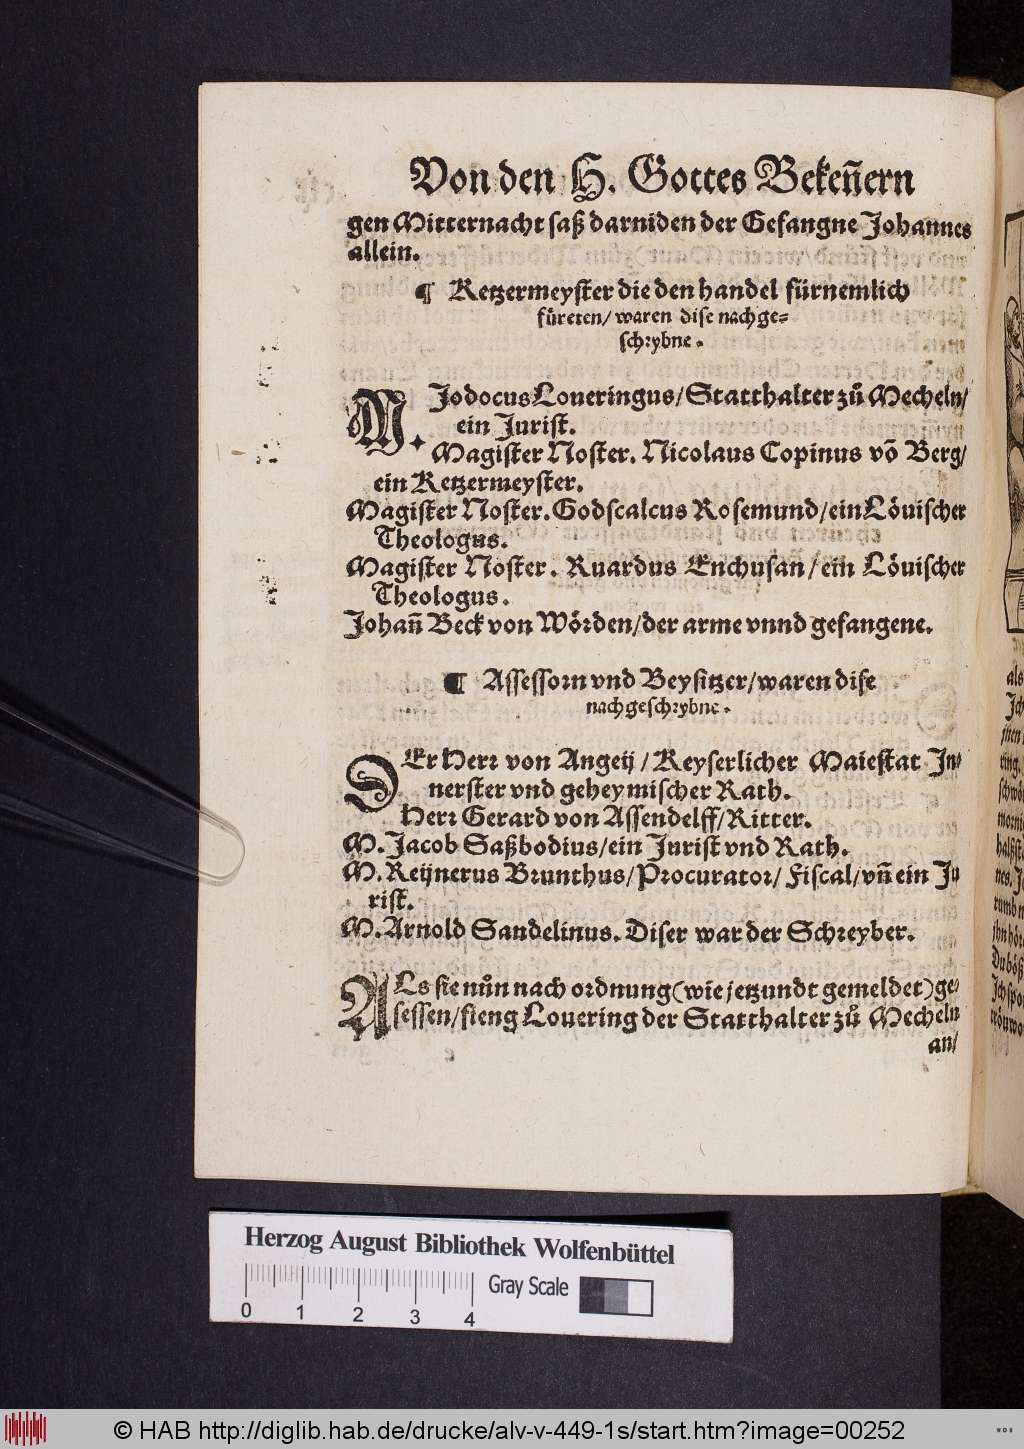 Von den H. Gottes Bekeñern
gen Mitternacht saß darniden der Gefangne Johannes
allein.
¶ Ketzermeyster die den handel fürnemlich
füreten/ waren dise nachge=
schrybne.
M. Jodocus Loueringus/Statthalter zů Mecheln/
ein Jurist.
Magister Noster. Nicolaus Copinus võ Berg/
ein Ketzermeyster.
Magister Noster. Godscalcus Rosemund/ein Löuischer
Theologus.
Magister Noster. Ruardus Enchusan/ein Löuischer
Theologus.
Johañ Beck von Wörden/der arme vnnd gefangene.
¶ Assessorn vnd Beysitzer/waren dise
nachgeschrybne.
DEr Herr von Angeij/Keyserlicher Maiestat In=
nerster vnd geheymischer Rath.
Herr Gerard von Assendelff/Ritter.
M. Jacob Saßbodius/ein Jurist vnd Rath.
M. Reijnerus Brunthus/Procurator/ Fiscal/vñ ein Ju
rist.
M. Arnold Sandelinus. Diser war der Schreyber.
ALs sie nůn nach ordnung(wie jetzundt gemeldet)ge=
sessen/fieng Louering der Statthalter zů Mecheln
an/
als
Herzog August Bibliothek Wolfenbüttel
Gray Scale
0 1 2 3 4
© HAB http://diglib.hab.de/drucke/alv-v-449-1s/start.htm?image=00252